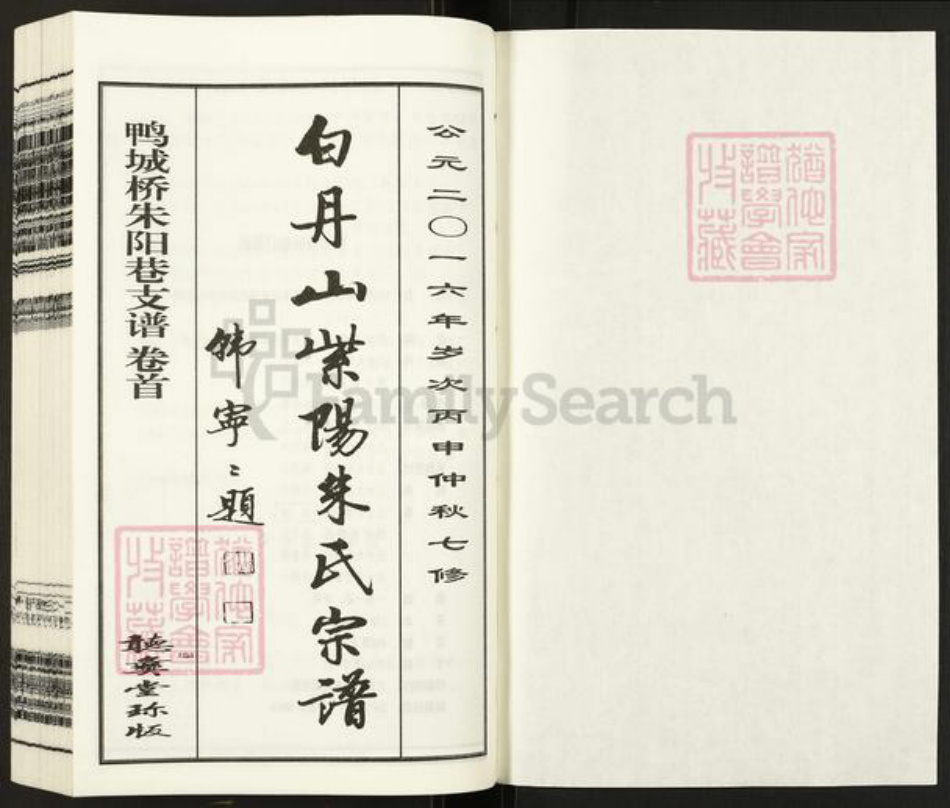 猶他家
譜學會
收藏
公元二〇一六年岁次丙申仲秋七修
白丹山紫陽朱氏宗譜
韩寧〻題
鸭城桥朱阳巷支谱 卷首
堂珍版
猶他家
譜學會
收藏
FamilySearch